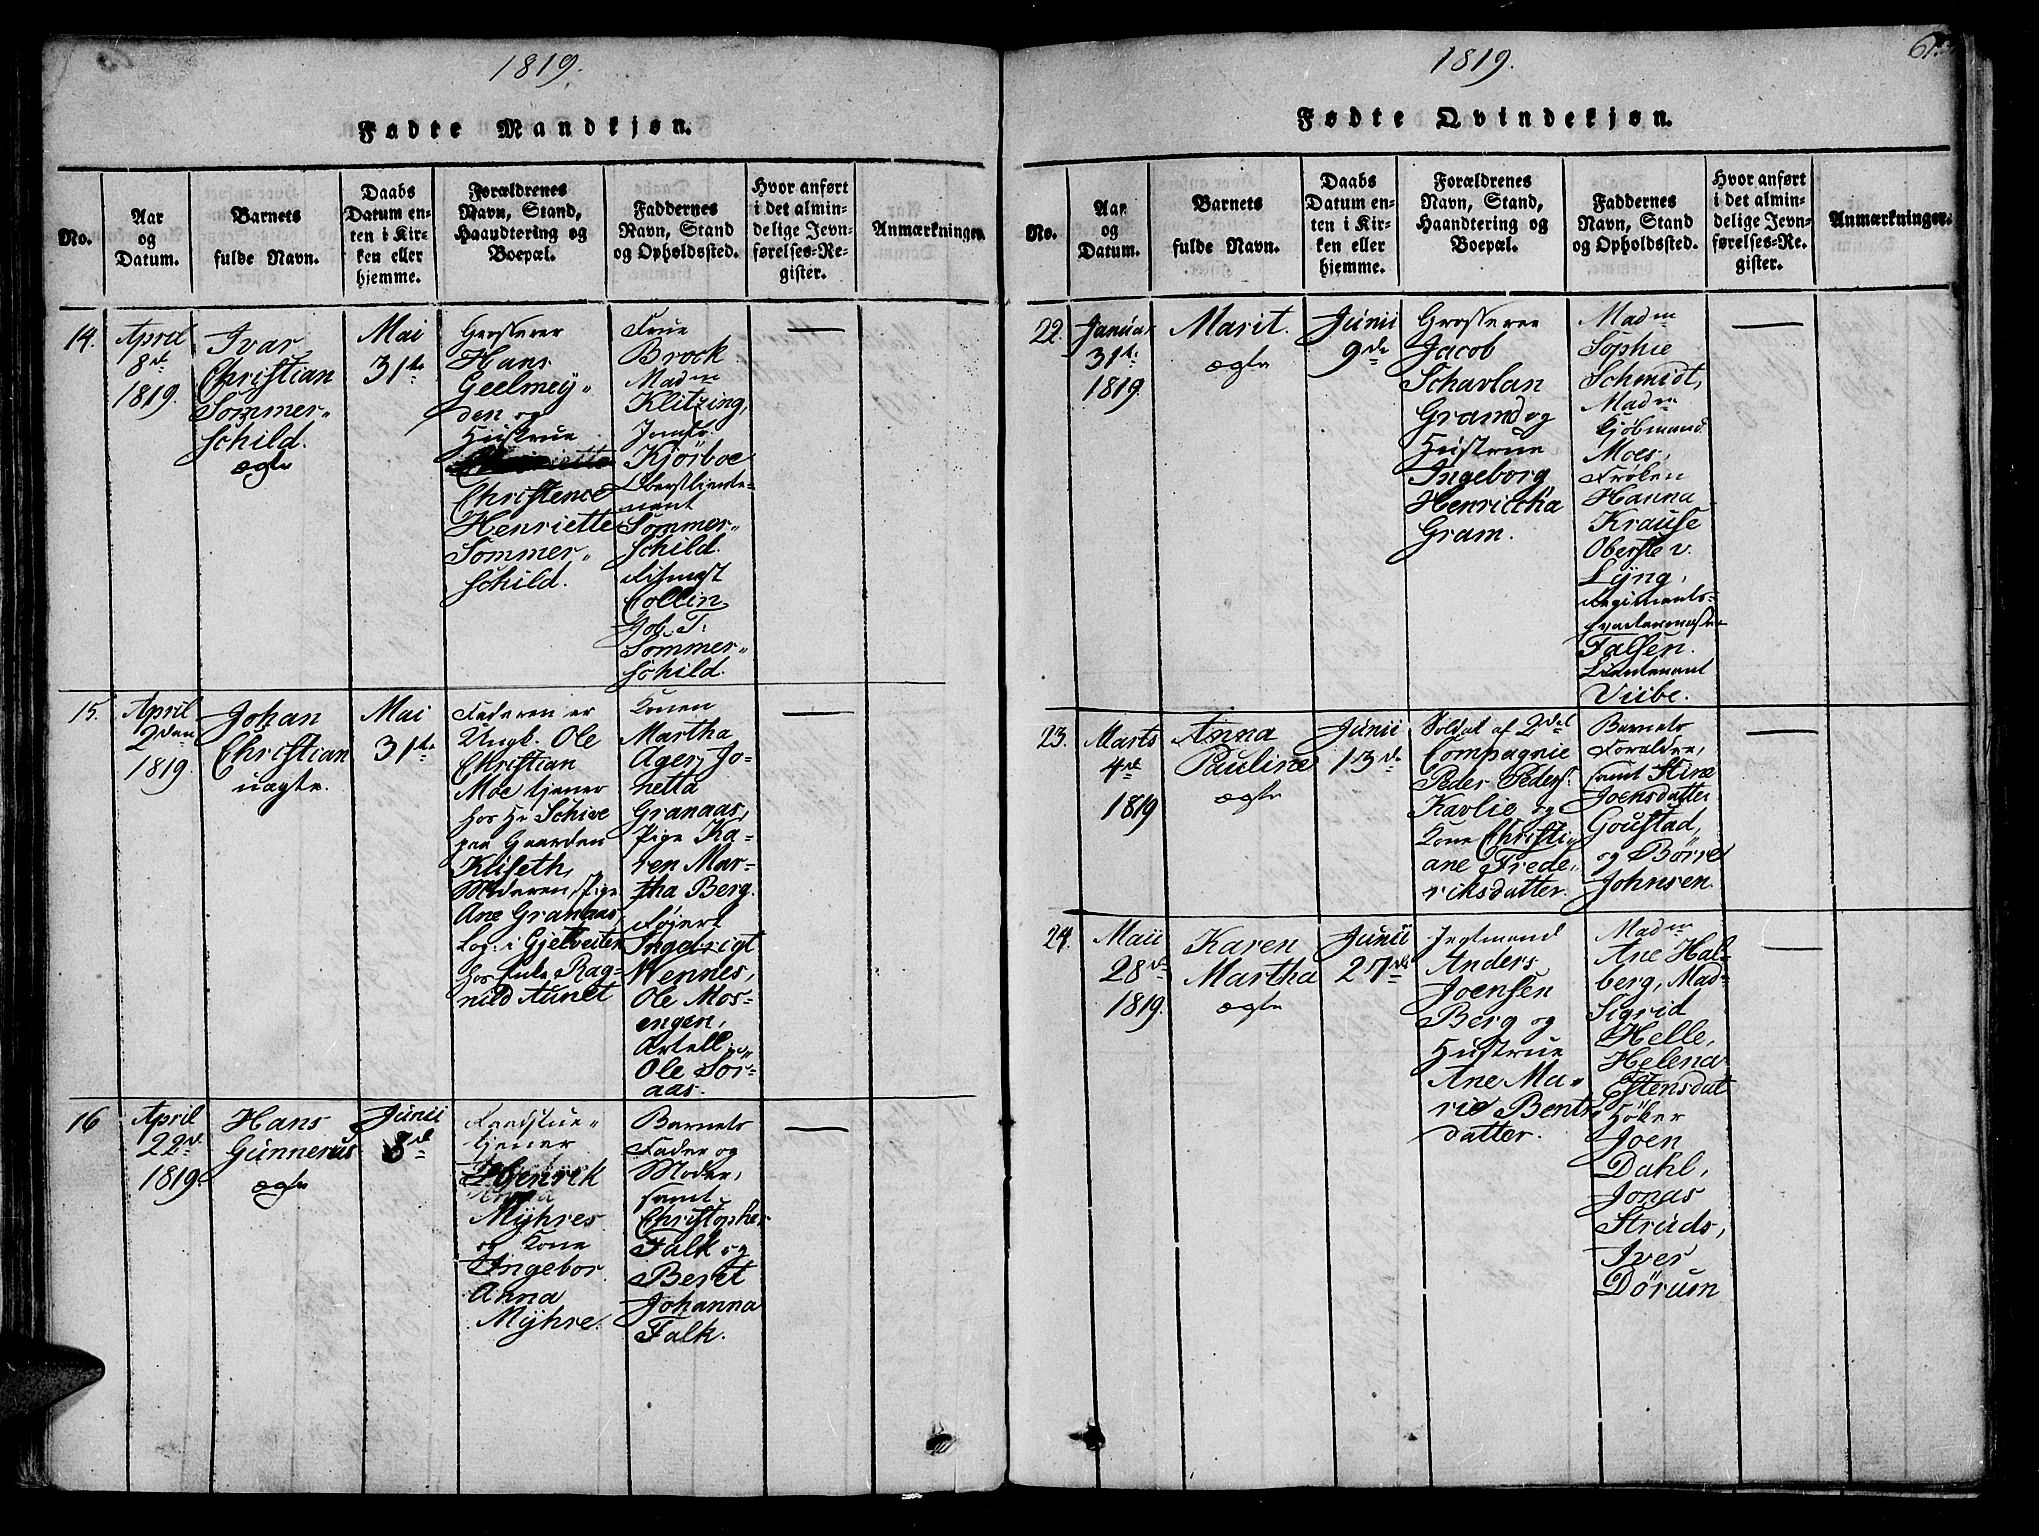 1819.
Fødte Mandkjøn.
No.
Aar
og
Datum.
Barnets
fulde Navn.
Daabs
Datum en-
ten i Kir-
ken eller
hjemme.
Forældrenes
Navn, Stand,
Haandtering og
Boepæl.
Faddernes
Navn, Stand
og Opholdssted.
Hvor anført
i det almin-
delige Jevn-
førelses-Re-
gister.
Anmærkninger.
14.
April
8de
1819.
Ivar
Christian
Sommer-
Schild.
ægte
Mai
31te
Grosserer
Hans
Geelmey-
den og
Hustrue
Christence
Henriette
Sommer-
schild.
Frue
Brock
Madm
Klitzing,
Jomfr.
Kjørboe
Oberstlieute-
nant
Sommer-
Schild.
Ritmest
Collin
Gob. T.
Sommer-
schild.
15.
April
2den
1819.
Johan
Christian
uægte.
Mai
31te
Faderen er
Ungk. Ole
Christian
Moe tjener
hos Hr Schive
paa Gaarden
Kliseth,
Moderen, Pige
Ane Granaas,
log: i Gjetveiten
hos Enke Rag-
nild Aunet
Konen
Martha
Ager, Jo-
hetta
Granaas,
Pige Ka-
ren Mar-
tha Berg.
Ingebrigt
Wennes,
Ole Mos-
engen,
Artell:
Ole Sør-
aas.
16
April
22de
1819.
Hans
Gunnerus
ægte
Junii
8de
Raadstue-
tjener
Henrik
Myhres
og Kone
Ingebor
Anna
Myhre.
Barnets
Fader og
Moder,
samt
Christopher
Falk og
Beret
Johanna
Falk.
1819.
Fødte Qvindekjøn.
No.
Aar
og
Datum.
Barnets
fulde Navn.
Daabs
Datum en-
ten i Kir-
ken eller
hjemme.
Forældrenes
Navn, Stand,
Haandtering og
Boepæl.
Faddernes
Navn, Stand
og Opholdssted.
Hvor anført
i det almin-
delige Jevn-
førelses-Re-
gister.
Anmærkninger.
22.
Januar
31te
1819.
Marit.
ægte
Junii
9de
Grosserer
Jacob
Schavlan
Gram og
Hustrue
Ingeborg
Henriccha
Gram.
Madm
Sophie
Schmidt,
Madm
Kjøbmand
Moes,
Frøken
Hanna
Krause
Oberste v.
Lyng,
Regiments-
qvarteermester
Falsen.
Lieutenant
Viibe.
23.
Marts
4de
1819
Anna
Pauline
ægte
Junii
13de
Soldat af 2det
Compagnie
Peder Peders.
Kavlie og
Kone Christi-
ane Frede-
riksdatter.
Barnets
Forældre,
samt Stine
Joensdatter
Goustad,
og Børre
Johnsen.
24.
Maii
28de
1819.
Karen
Martha
ægte
Junii
27de
Jegtmand
Anders
Joensen
Berg og
Hustrue
Ane Ma-
rie Bents
datter.
Madm
Ane Hal-
berg, Mad-
Sigrid
Helle,
Helena
Estensdat
Høker
Joen
Dahl,
Jonas
Struds,
Iver
Dørum